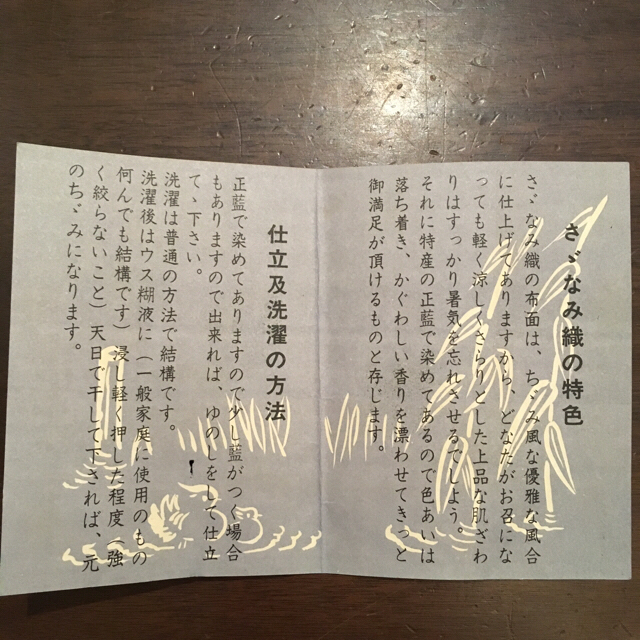 さゞなみ織の特色
さゞなみ織の布面は、ちゞみ風な優雅な風合
に仕上げてありますから、どなたがお召にな
っても軽く涼しくさらりとした上品な肌ざわ
りはすっかり暑気を忘れさせるでしよう。
それに特産の正藍で染めてあるので色あいは
落ち着き、かぐわしい香りを漂わせてきっと
御満足が頂けるものと存じます。
仕立及洗濯の方法
正藍で染めてありますので少し藍がつく場合
もありますので出来れば、ゆのしをして仕立
てゝ下さい。
洗濯は普通の方法で結構です。
洗濯後はウス糊液に（一般家庭に使用のもの
何んでも結構です）浸し軽く押した程度（強
く絞らないこと）天日で干して下されば、元
のちゞみになります。